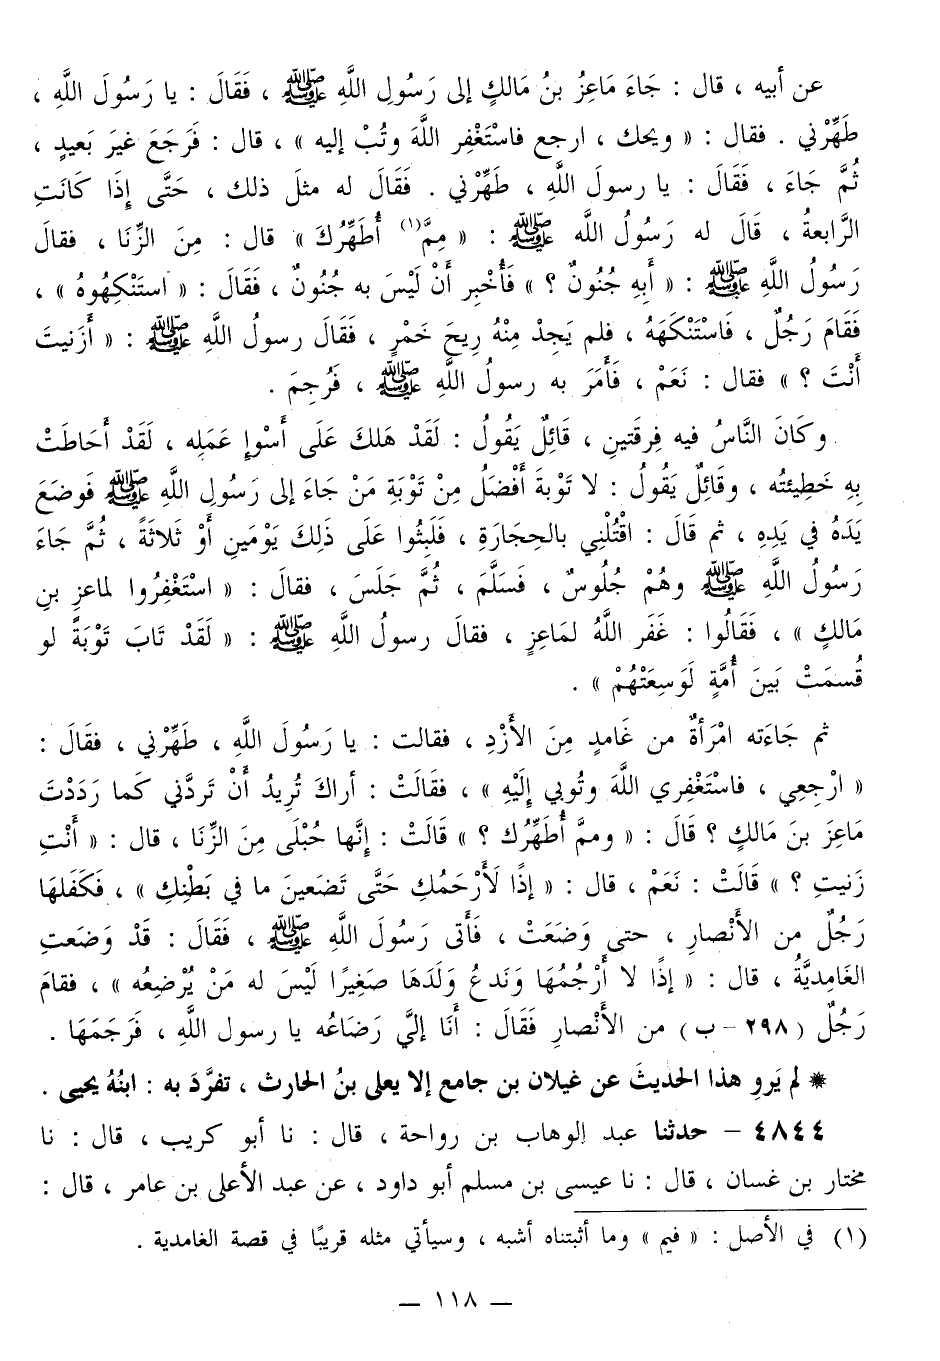 عن أبيه ، قال : جَاءَ مَاعِزُ بنُ مَالكٍ إلى رَسُولِ اللَّهِ ﷺ ، فَقَالَ : يا رَسُولَ اللَّهِ ،
طَهِّرْني . فقال : « ويحك ، ارجع فاسْتَغْفِر اللَّهَ وتُبْ إليه » ، قال : فَرَجَعَ غيرَ بَعيدٍ ،
ثُمَّ جَاءَ ، فَقَالَ : يا رسولَ اللَّهِ ، طَهِّرْني . فَقَالَ له مثلَ ذلك ، حَتَّى إذَا كَانَتِ
الرَّابعةُ ، قَالَ له رَسُولُ اللَّه ﷺ : « مِمَّ(١) أُطَهِّرُكَ » قال : مِنَ الزِّنَا ، فقالَ
رَسُولُ اللَّهِ ﷺ : « أَبِهِ جُنُونٌ ؟ » فَأُخْبِر أَنْ لَيْسَ به جُنُونٌ ، فَقَالَ : « استَنْكِهُوهُ » ،
فَقَامَ رَجُلٌ ، فَاسْتَنْكَهَهُ ، فلم يَجِدْ مِنْهُ رِيحَ خَمْرٍ ، فَقَالَ رسولُ اللَّهِ ﷺ : « أَزَنيتَ
أَنْتَ ؟ » فقال : نَعَمْ ، فَأَمَرَ به رسولُ اللَّهِ ﷺ ، فَرُجِمَ .
وكَانَ النَّاسُ فيه فِرقَتينِ ، قَائِلٌ يَقُولُ : لَقَدْ هَلكَ عَلَى أَسْوإِ عَمَلِه ، لَقَدْ أَحَاطَتْ
بِهِ خَطِيئتُه ، وقَائِلٌ يَقُولُ : لا تَوْبةَ أَفْضَلُ مِنْ تَوْبَةِ مَنْ جَاءَ إلى رَسُولِ اللَّهِ ﷺ فَوضَعَ
يَدَهُ في يَدِهِ ، ثم قَالَ : اقْتُلْنِي بالحِجَارَةِ ، فَلَبِثُوا عَلَى ذَلِكَ يَوْمَينِ أَوْ ثَلاثَةً ، ثُمَّ جَاءَ
رَسُولُ اللَّهِ ﷺ وهُمْ جُلُوسٌ ، فَسَلَّمَ ، ثُمَّ جَلَسَ ، فقالَ : « اسْتَغْفِرُوا لماعزِ بنِ
مَالكٍ » ، فَقَالُوا : غَفَر اللَّهُ لمَاعِزٍ ، فقالَ رسولُ اللَّهِ ﷺ : « لَقَدْ تَابَ تَوْبَةً لو
قُسمَتْ بَينَ أُمَّةٍ لَوَسِعَتْهُمْ » .
ثم جَاءَته امْرَأةٌ من غَامدٍ مِنَ الأَزْدِ ، فقالت : يا رَسُولَ اللَّهِ ، طَهِّرْني ، فقَالَ :
« ارْجِعِي ، فاسْتَغْفِري اللَّهَ وتُوبي إِلَيْهِ » ، فقَالَتْ : أراكَ تُرِيدُ أَنْ تَردَّني كَما رَدَدْتَ
مَاعِزَ بنَ مَالكٍ ؟ قَالَ : « وممَّ أُطَهِّرُك ؟ » قَالَتْ : إِنَّها حُبْلَى مِنَ الزِّنَا ، قال : « أَنْتِ
زَنيتِ ؟ » قَالَتْ : نَعَمْ ، قال : « إذًا لأَرْجُمُكِ حَتَّى تَضَعينَ ما في بَطْنِكِ » ، فكَفَلهَا
رَجُلٌ من الأَنْصارِ ، حتى وَضَعَتْ ، فَأَتَى رَسُولَ اللَّهِ ﷺ ، فَقَالَ : قَدْ وَضَعتِ
الغَامِديَّةُ ، قال : « إذًا لا أَرْجُمُهَا وَنَدعُ وَلَدَهَا صَغِيرًا لَيْسَ له مَنْ يُرْضِعُه » ، فقامَ
رَجُلٌ ( ٢٩٨ - ب ) من الأَنْصارِ فَقَالَ : أَنَا إليَّ رَضَاعُه يا رسول اللَّهِ ، فَرَجَمَهَا .
* لم يَروِ هذا الحديثَ عن غيلان بن جامع إلا يعلى بنُ الحارث ، تفرَّدَ به : ابنُهُ يحيى .
٤٨٤٤ - حدثنا عبد الوهاب بن رواحة ، قال : نا أبو كريب ، قال : نا
مختار بن غسان ، قال : نا عيسى بن مسلم أبو داود ، عن عبد الأعلى بن عامر ، قال :
(١) في الأصل : « فيم » وما أثبتناه أشبه ، وسيأتي مثله قريبًا في قصة الغامدية .
— ١١٨ —